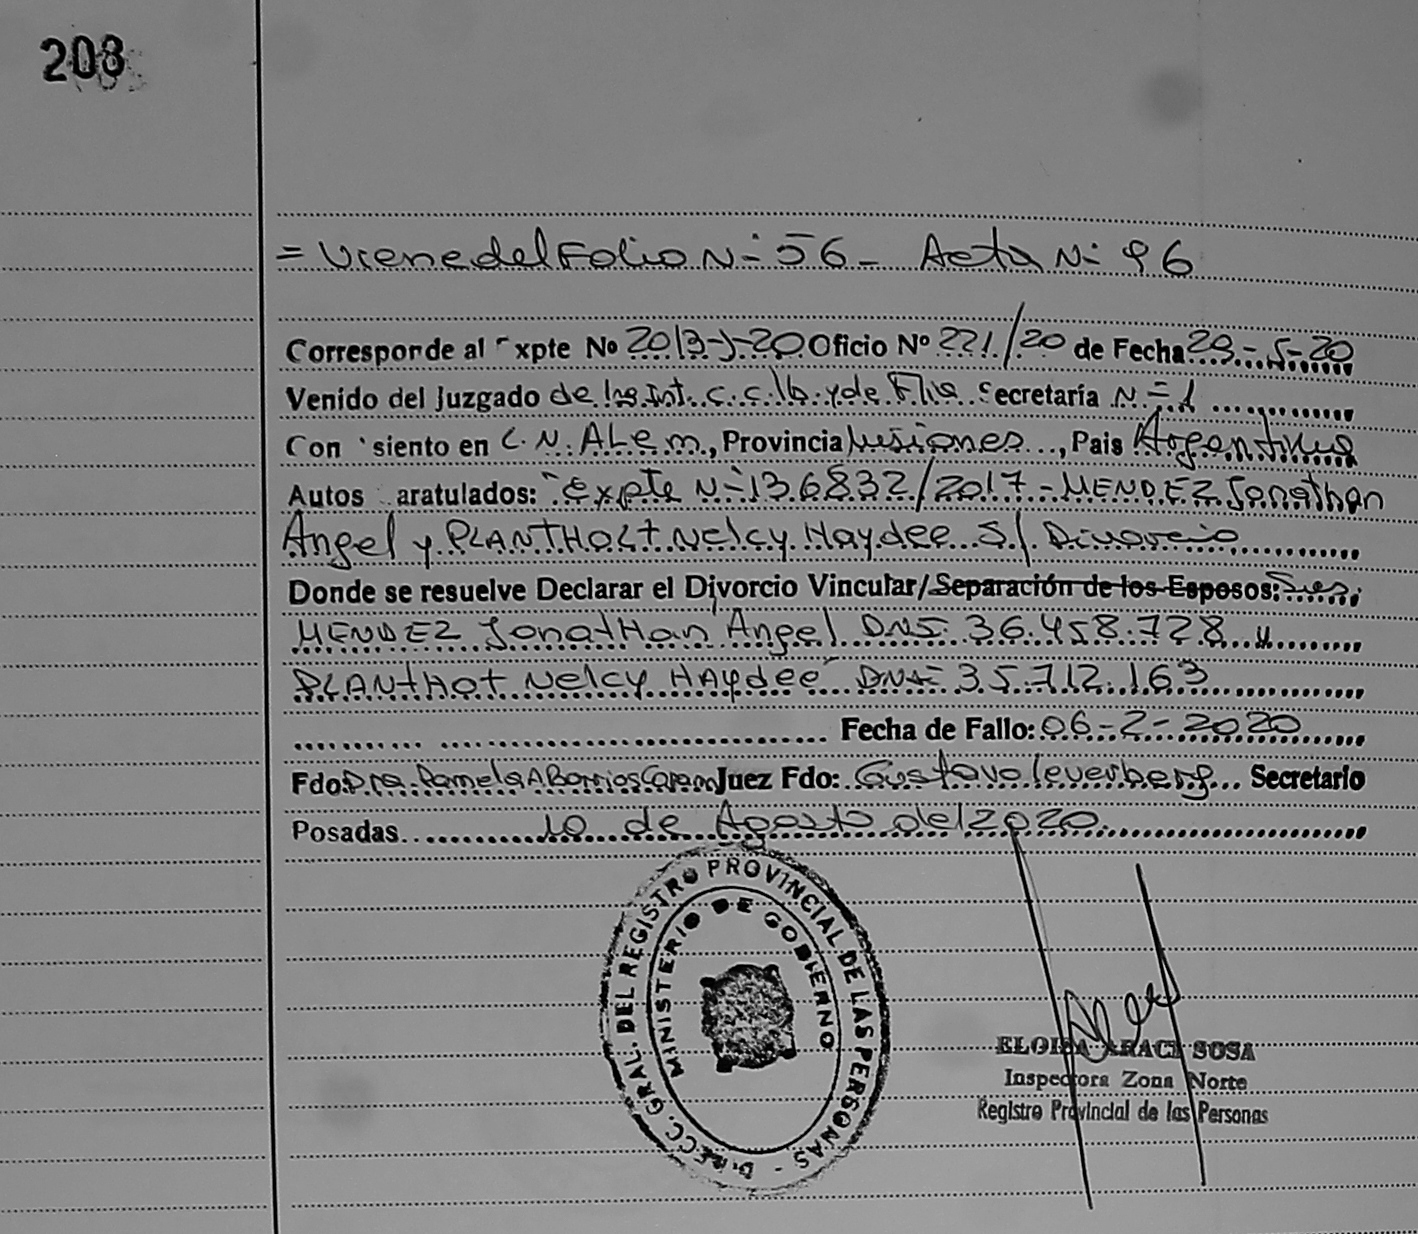 208
= Viene del Folio N- 56 - Acta N- 96
Corresponde al Expte No 2013-J-20 Oficio Nº 221/20 de Fecha 29-5-20
Venido del Juzgado de 1ra Int. C.C.lb. y de Flia Secretaría N= 1
Con siento en L.N. ALem, Provincia Misiones, Pais Argentina
Autos aratulados: "Expte N-136832/2017 - MENDEZ Jonathan
Angel y PLANTHOLT Nelcy Haydee S/ Divorcio
Donde se resuelve Declarar el Divorcio Vincular/Separación de los Esposos:
MENDEZ Jonathan Angel DNI 36.458.728 y
PLANTHOT Nelcy HAydee DNI 35.712.163
Fecha de Fallo: 06-2-2020
Fdo Dra. Pamela A Barrios Juez Fdo: Gustavo Secretario
Posadas 10 de Agosto del 2020
DIRECC. GRAL. DEL REGISTRO PROVINCIAL DE LAS PERSONAS -
MINISTERIO DE GOBIERNO
ELOISA ARACI SOSA
Inspectora Zona Norte
Registro Provincial de las Personas